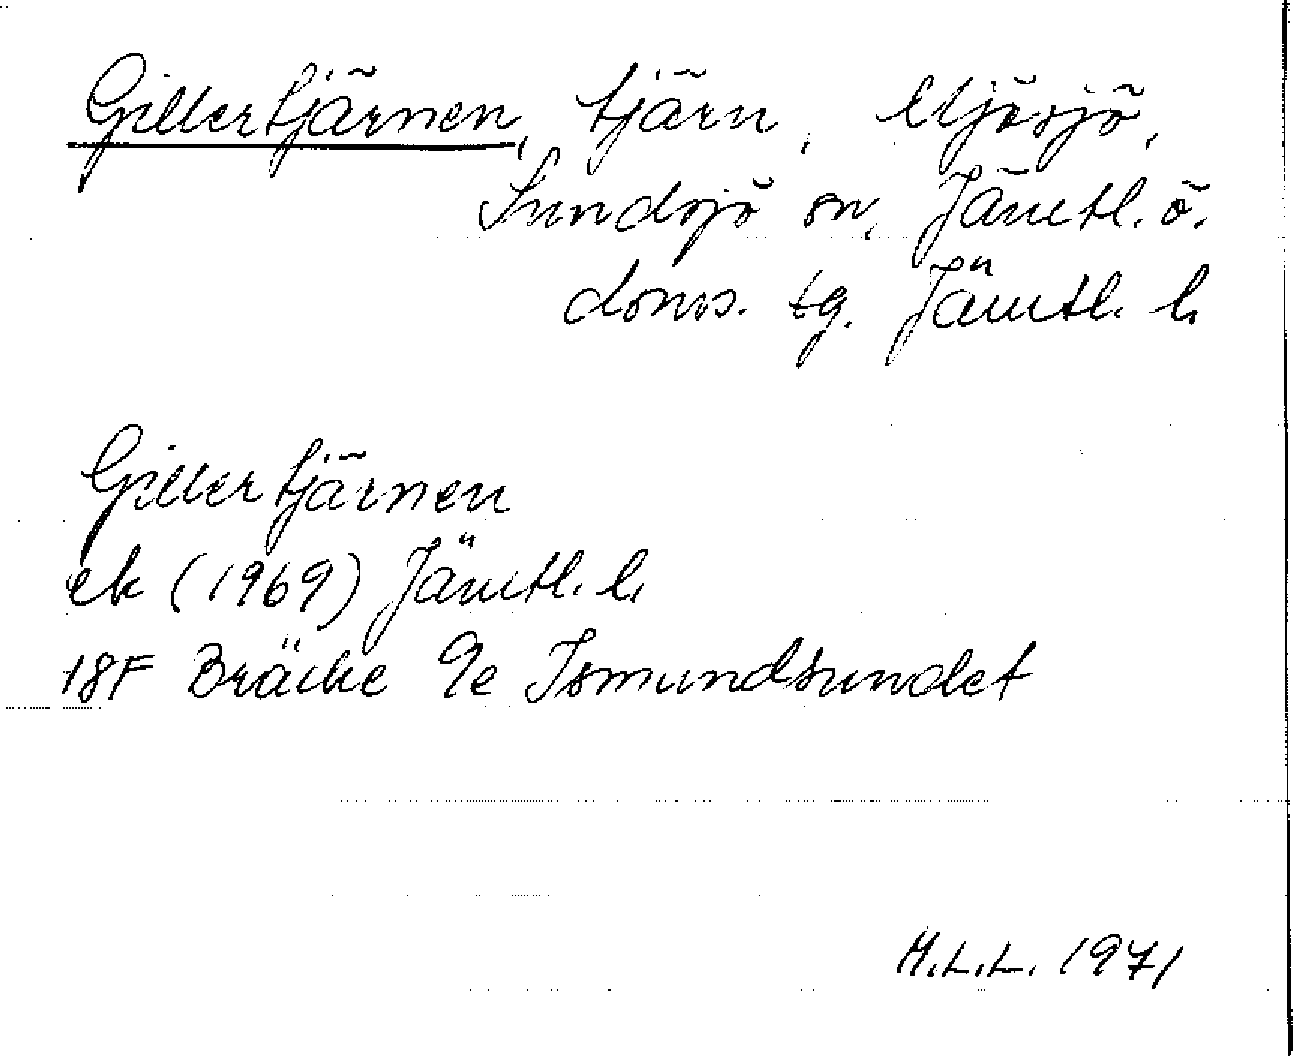 Gillertjärnen, tjärn, Mjösjö,
Sundsjö sn, Jämtl. ö.
doms. tg. Jämtl. l.
Gillertjärnen
ek (1969) Jämtl. l.
18F Bräcke 9e Ismundsundet
M.L.L. 1971